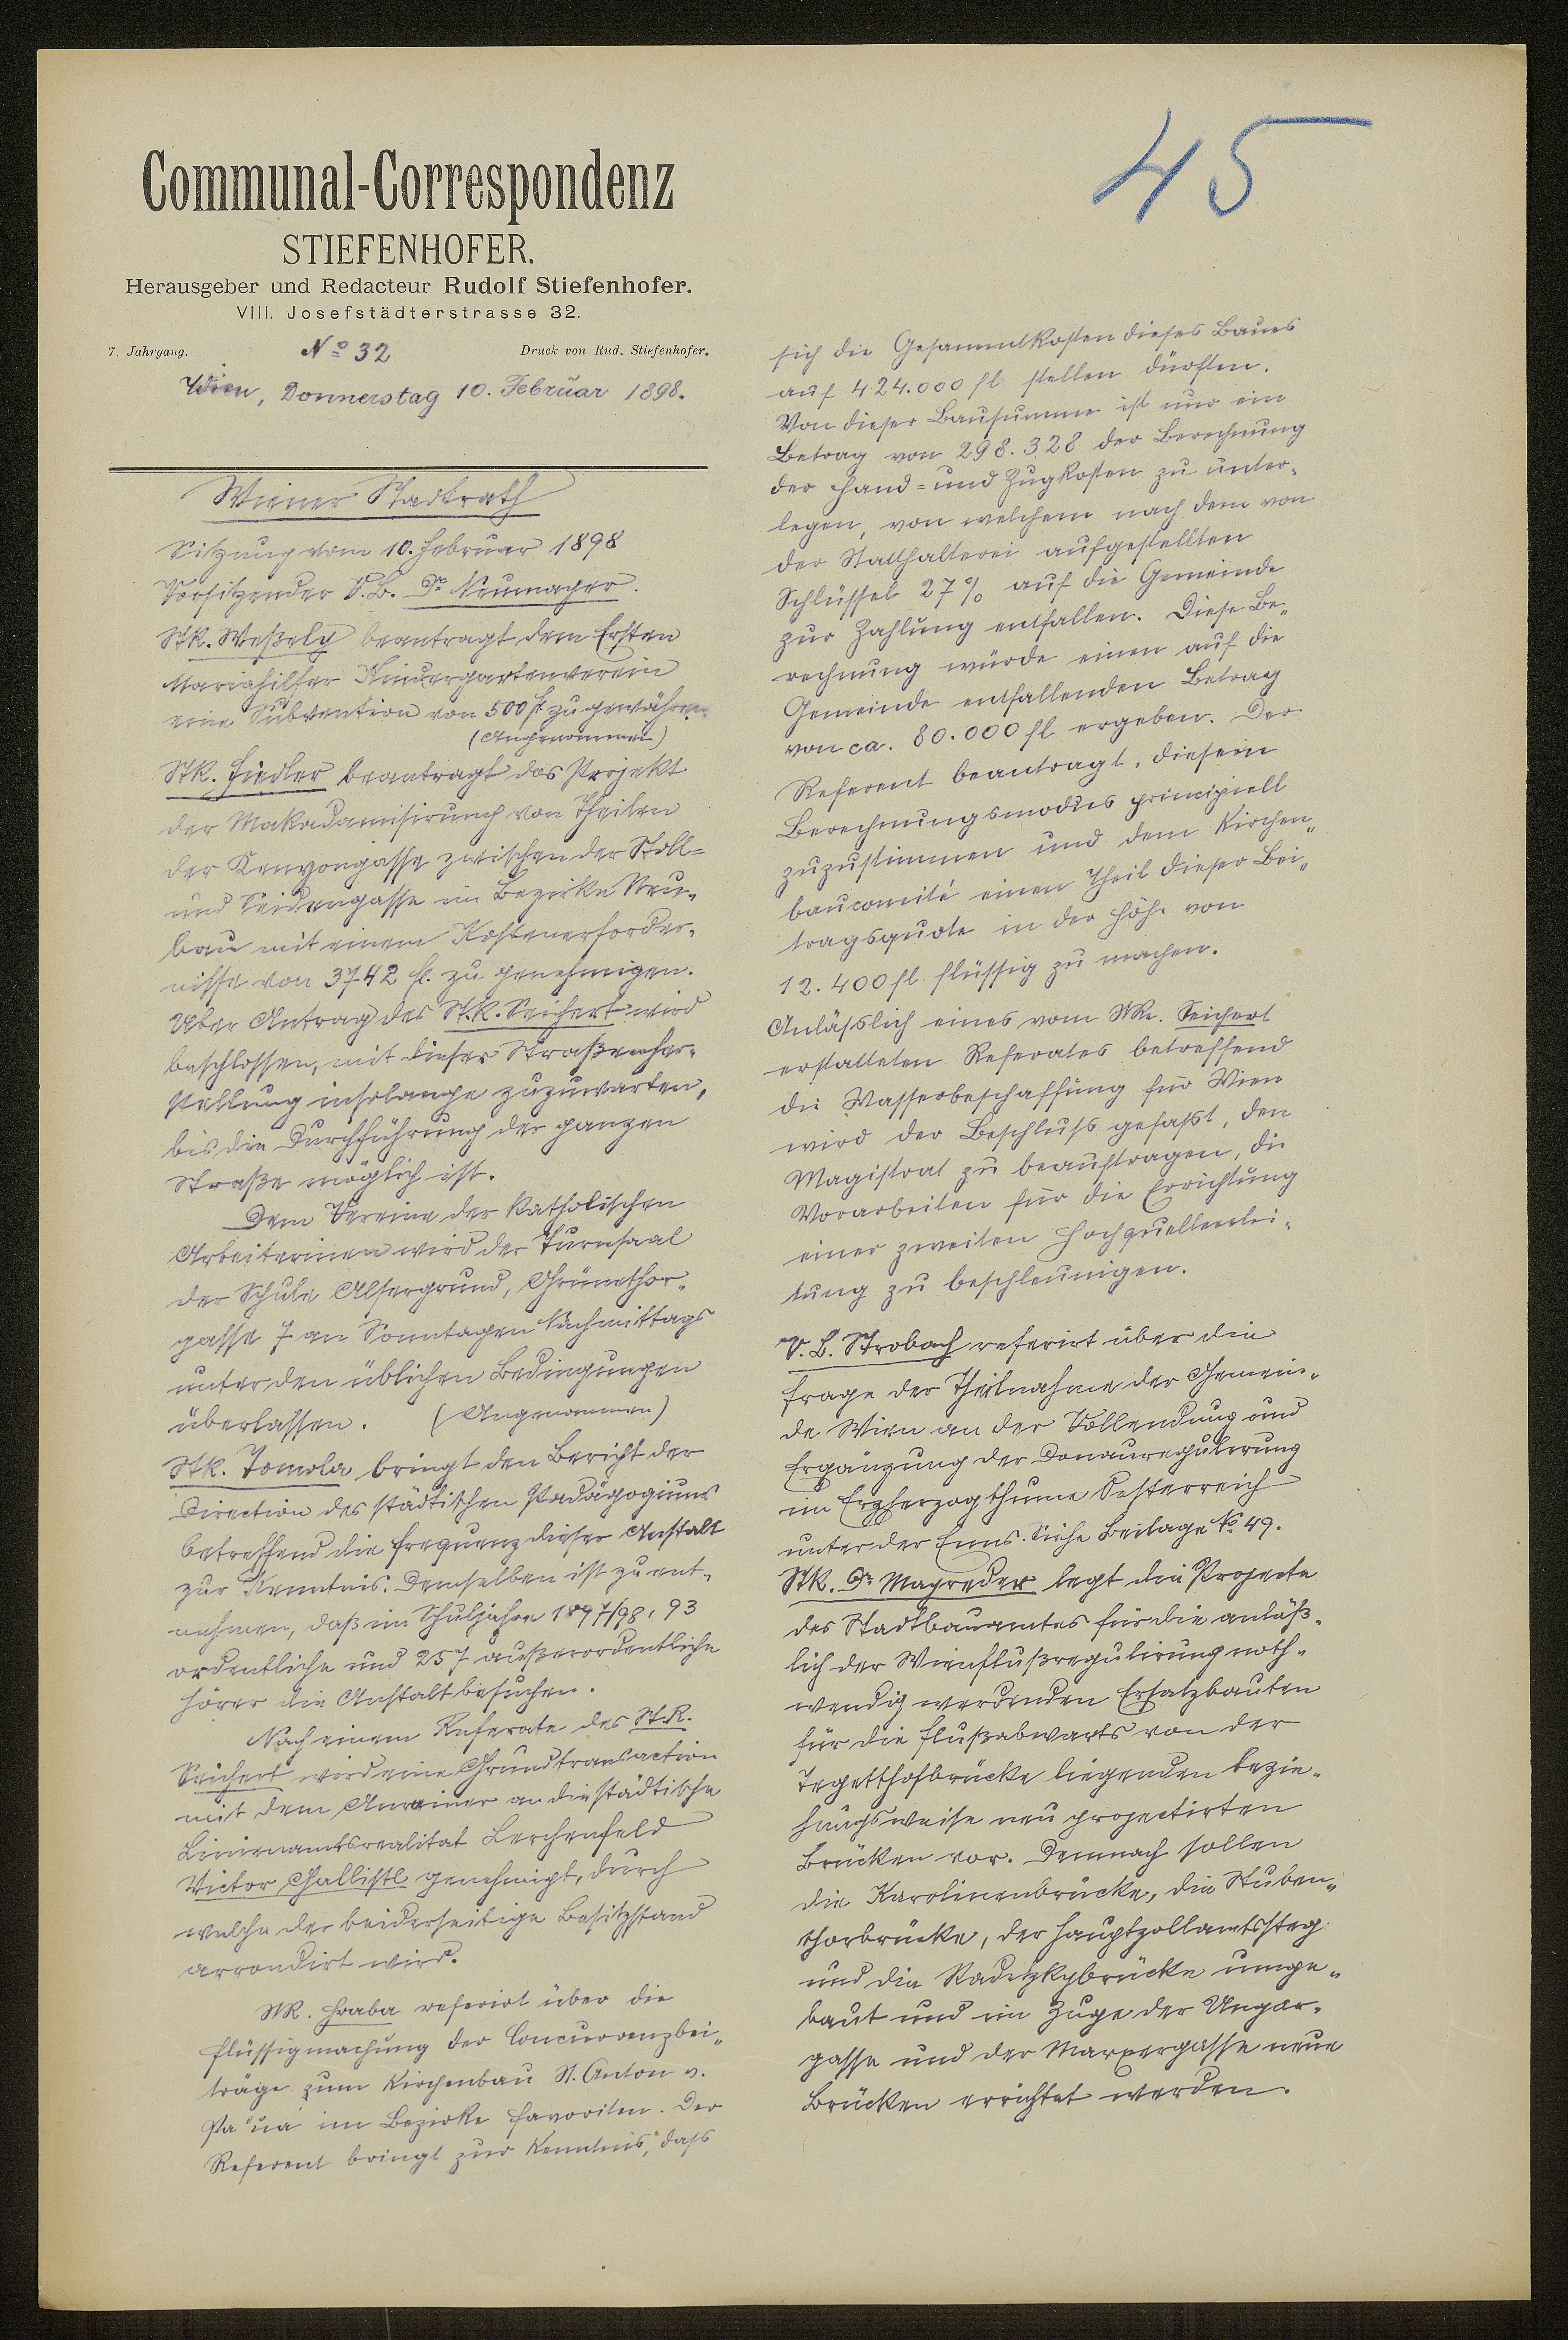 45
Communal-Correspondenz
STIEFENHOFER.
Herausgeber und Redacteur Rudolf Stiefenhofer.
VIII. Josefstädterstrasse 32.
7. Jahrgang. No 32 Druck von Rud. Stiefenhofer.
Wien, Donnerstag 10. Februar 1898.
Wiener Stadtrath
Sitzung vom 10. Februar 1898
Vorsitzender V.B. Dr Neumayer.
StR. Weßely beantragt dem Ersten
Mariahilfer Kindergartenverein
eine Subvention von 500 fl. zu gewähren.
(Angenommen)
StR. Fiedler beantragt das Projekt
der Makadamisirung von Theilen
der Kenyongasse zwischen der Stoll=
und Seidengasse im Bezirke Neu-
bau mit einem Kostenerforder-
nisse von 3742 fl. zu genehmigen.
Über Antrag des St.R. Seichert wird
beschlossen, mit dieser Straßenher-
stellung insolange zuzuwarten,
bis die Durchführung der ganzen
Straße möglich ist.
Dem Vereine der katholischen
Arbeiterinen wird der Turnsaal
der Schule Alsergrund, Grünethor-
gasse 7 an Sonntagen Nachmittags
unter den üblichen Bedingungen
überlassen. (Angenommen)
StR. Tomola bringt den Bericht der
Direction des städtischen Pädagogiums
betreffend die Frequenz dieser Anstalt
zur Kenntnis. Demselben ist zu ent-
nehmen, daß im Schuljahre 1897/98, 93
ordentliche und 257 außerordentliche
Hörer die Anstalt besuchen.
Nach einem Referate des St.R.
Seichert wird eine Grundtransaction
mit dem Anrainer an die städtische
Linienamtsrealität Lerchenfeld
Victor Gallistl genehmigt, durch
welche der beiderseitige Besitzstand
arrondirt wird.
StR. Hraba referirt über die
Flüssigmachung der Concurrenzbei-
träge zum Kirchenbau St. Anton v.
Padua im Bezirke Favoriten. Der
Referent bringt zur Kenntnis, dass
sich die Gesammtkosten dieses Baues
auf 424.000 fl stellen dürften.
Von dieser Bausumme ist nur ein
Betrag von 298.328 der Berechnung
der Hand= und Zugkosten zu unter-
legen, von welchem nach dem von
der Statthalterei aufgestellten
Schlüssel 27% auf die Gemeinde
zur Zahlung entfallen. Diese Be-
rechnung würde einen auf die
Gemeinde entfallenden Betrag
von ca. 80.000 fl ergeben. Der
Referent beantragt, diesem
Berechnungsmodus principiell
zuzustimmen und dem Kirchen-
baucomité einen Theil dieser Bei-
tragsquote in der Höhe von
12.400 fl flüssig zu machen.
Anlässlich eines vom StR. Seichert
erstatteten Referates betreffend
die Wasserbeschaffung für Wien
wird der Beschluss gefaßt, den
Magistrat zu beauftragen, die
Vorarbeiten für die Errichtung
einer zweiten Hochquellenlei-
tung zu beschleunigen.
V.B. Strobach referirt über die
Frage der Theilnahme der Gemein-
de Wien an der Vollendung und
Ergänzung der Donauregulirung
im Erzherzogthume Oesterreich
unter der Enns. Siehe Beilage No 49.
StR. Dr Mayreder legt die Projecte
des Stadtbauamtes für die anläß-
lich der Wienflußregulirung noth-
wendig werdenden Ersatzbauten
für die flußabwärts von der
Tegetthofbrücke liegenden bezie-
hungsweise neu projectirten
Brücken vor. Demnach sollen
die Karolinenbrücke, die Stuben-
thorbrücke, der Hauptzollamtssteg
und die Radetzkybrücke umge-
baut und im Zuge der Ungar-
gasse und der Marxergasse neue
Brücken errichtet werden.